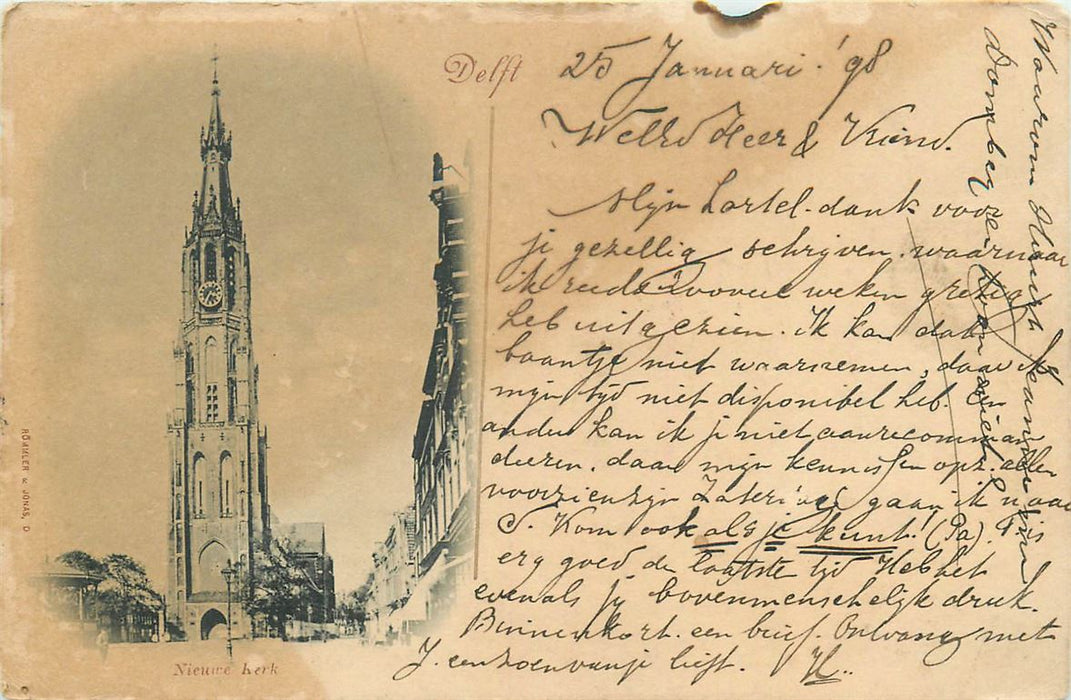 Delft
25 Januari '98
Heer & Vriend.
Mijn hartel. dank voor
je gezellig schrijven waarnaar
ik reeds zooveel weken gretig
heb uitgezien. Ik kan dat
baantje niet waarnemen, daar ik
mijn tijd niet disponibel heb. En
ander kan ik je niet aanrecomman
deeren, daar mijn kennissen opz. allen
voorzien zijn Zaterdag gaan ik naar
S. Kom ook als je kunt! (Pa). 't is
erg goed de laatste tijd Heb het
evenals jy bovenmenschelijk druk.
Binnenkort een brief. Ontvang met
J. een zoen van je lieft. H..
Waarom
RÖMMLER & JONAS, D
Nieuwe Kerk